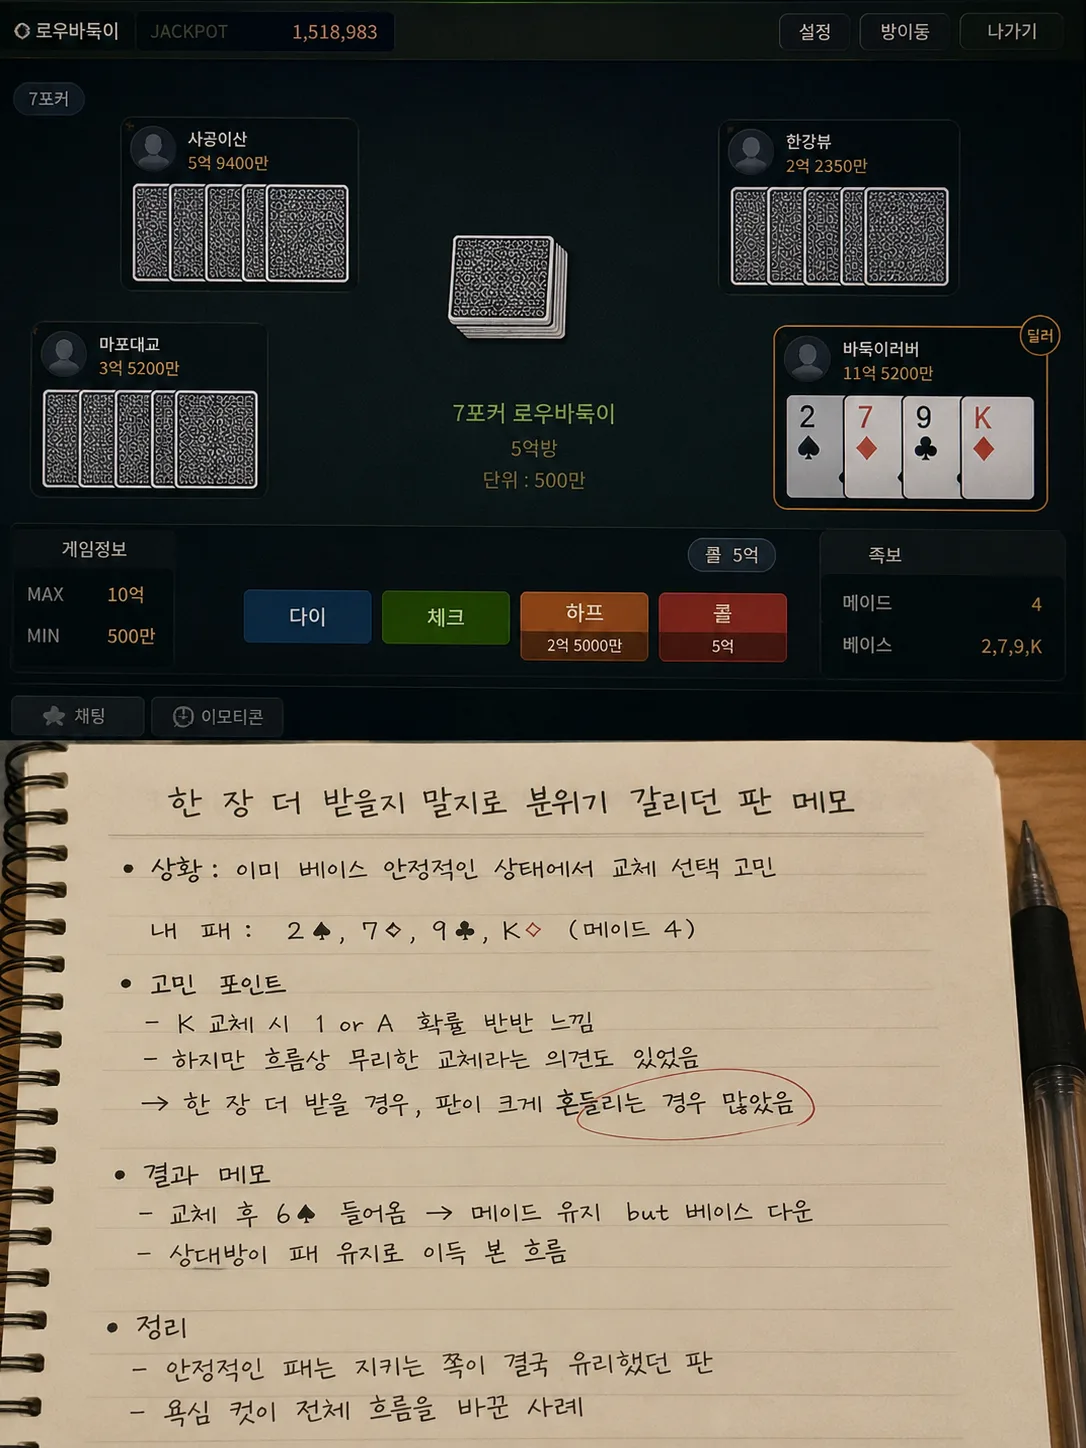 로우바둑이 JACKPOT 1,518,983 설정 방이동 나가기
7포커
사공이산
5억 9400만
한강뷰
2억 2350만
마포대교
3억 5200만
딜러
바둑이러버
11억 5200만
2 7 9 K
7포커 로우바둑이
5억방
단위 : 500만
게임정보
MAX 10억
MIN 500만
콜 5억
다이 체크 하프 콜
2억 5000만 5억
족보
메이드 4
베이스 2,7,9,K
채팅 이모티콘
한 장 더 받을지 말지로 분위기 갈리던 판 메모
• 상황 : 이미 베이스 안정적인 상태에서 교체 선택 고민
내 패 : 2♠, 7◇, 9♣, K◇ (메이드 4)
• 고민 포인트
- K 교체 시 1 or A 확률 반반 느낌
- 하지만 흐름상 무리한 교체라는 의견도 있었음
→ 한 장 더 받을 경우, 판이 크게 흔들리는 경우 많았음
• 결과 메모
- 교체 후 6♠ 들어옴 → 메이드 유지 but 베이스 다운
- 상대방이 패 유지로 이득 본 흐름
• 정리
- 안정적인 패는 지키는 쪽이 결국 유리했던 판
- 욕심 컷이 전체 흐름을 바꾼 사례